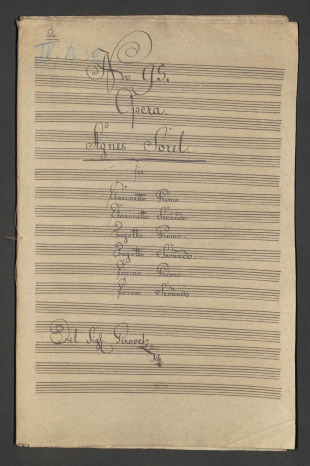 No 95.
Opera
Agnes Sorel.
für
Clarinetto Primo
Clarinetto Secundo
Fagotto Primo
Fagotto Secundo
Corno Primo
Corno Secundo
Del Sigl Girovetz